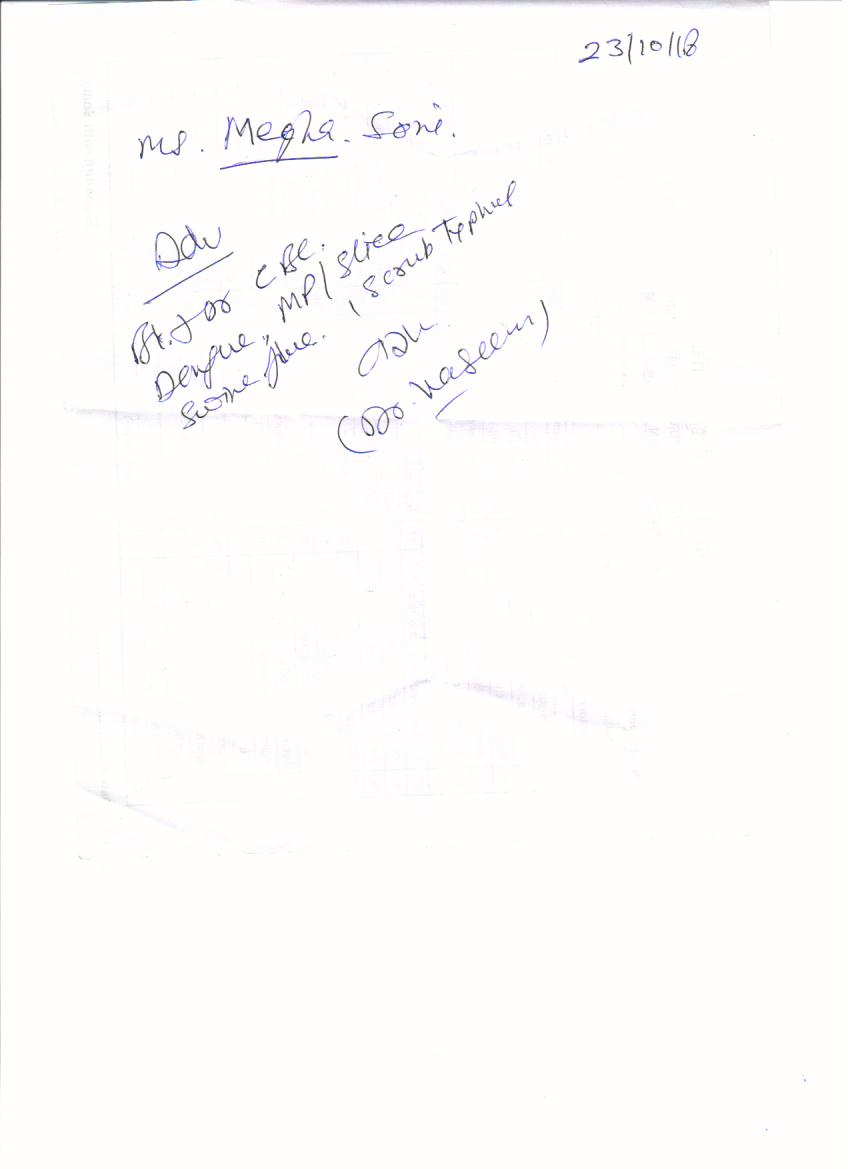 23/10/18
Ms. Megha. Soni.
Adv
Bt. for CBC.
Dengue, MP/Slide
Swine flue. , Scrub Typhus
(Dr. Naseem)